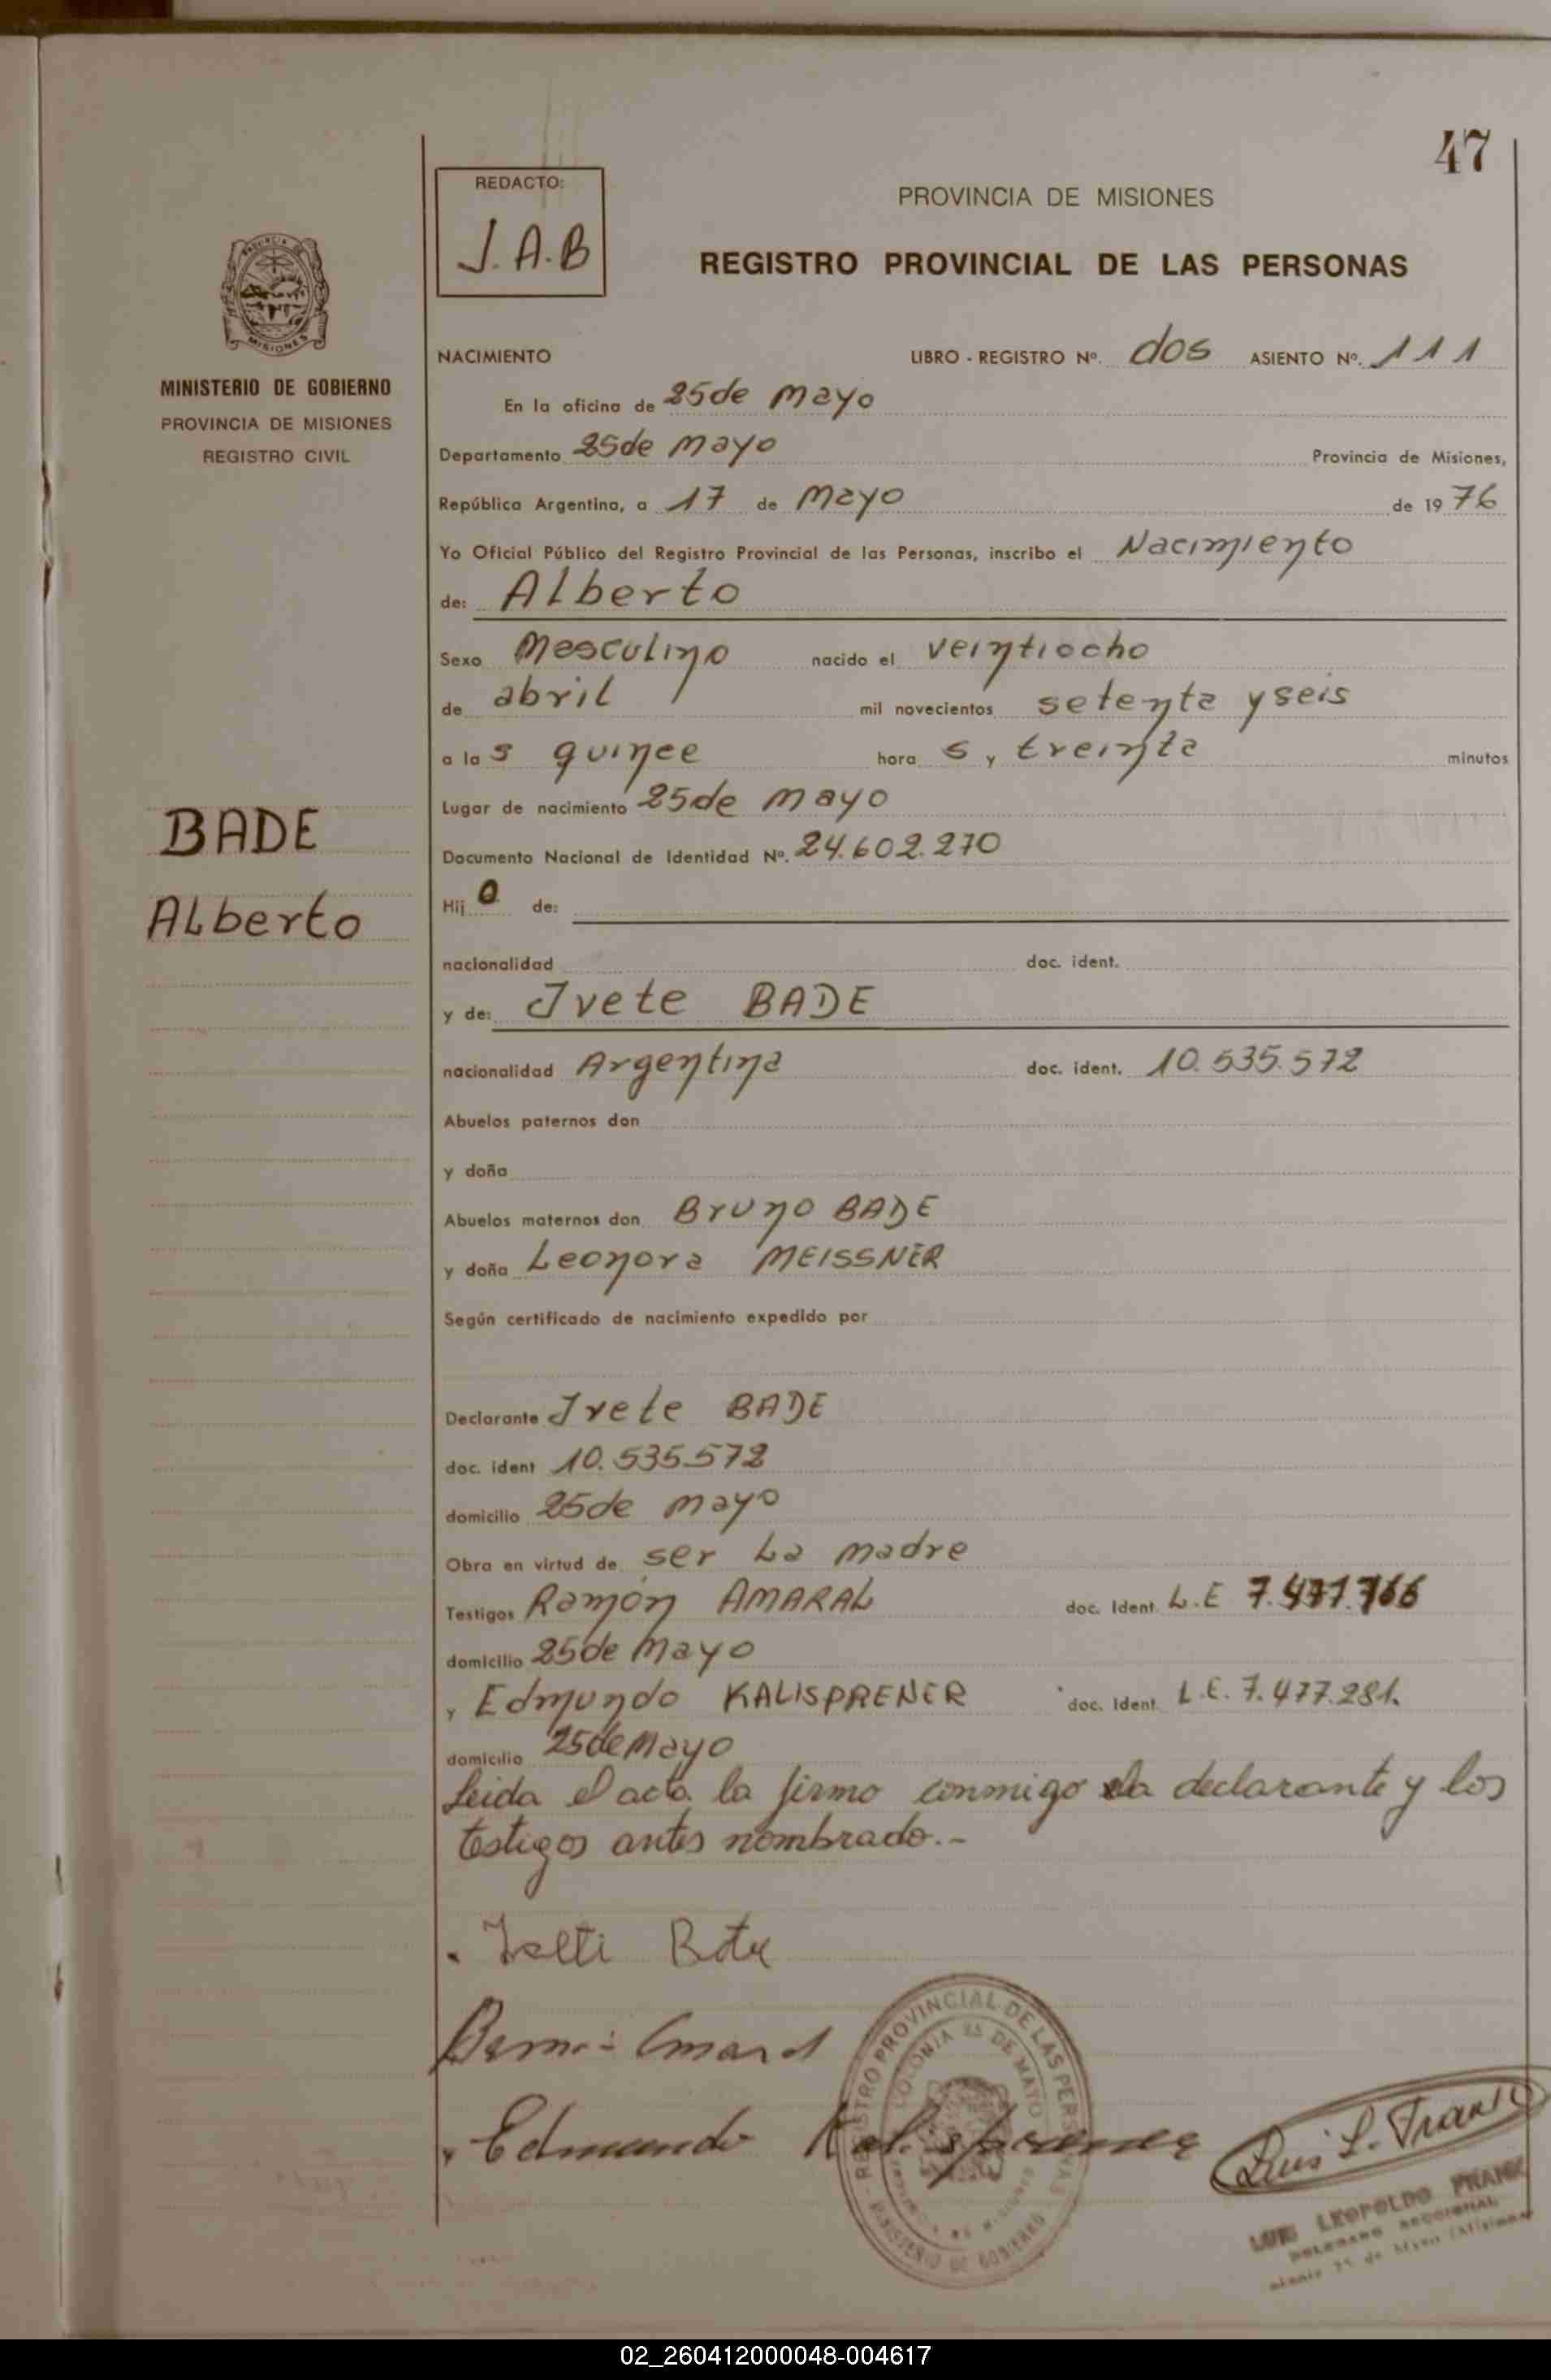 47
REDACTO:
J.A.B
PROVINCIA DE MISIONES
REGISTRO PROVINCIAL DE LAS PERSONAS
MISIONES
MINISTERIO DE GOBIERNO
PROVINCIA DE MISIONES
REGISTRO CIVIL
BADE
Alberto
NACIMIENTO LIBRO - REGISTRO Nº. dos ASIENTO Nº. 111
En la oficina de 25 de Mayo
Departamento 25 de Mayo Provincia de Misiones,
República Argentina, a 17 de Mayo de 1976
Yo Oficial Público del Registro Provincial de las Personas, inscribo el Nacimiento
de: Alberto
Sexo Masculino nacido el veintiocho
de abril mil novecientos setenta y seis
a las quince horas y treinta minutos
Lugar de nacimiento 25 de Mayo
Documento Nacional de Identidad Nº. 24.602.270
Hijo de:
nacionalidad doc. ident.
y de: Ivete BADE
nacionalidad Argentina doc. ident. 10.535.572
Abuelos paternos don
y doña
Abuelos maternos don Bruno BADE
y doña Leonora MEISSNER
Según certificado de nacimiento expedido por
Declarante Ivete BADE
doc. ident 10.535.572
domicilio 25 de Mayo
Obra en virtud de ser La madre
Testigos Ramón AMARAL doc. Ident. L.E 7.477.766
domicilio 25 de Mayo
y Edmundo KALISPRENER doc. Ident. L.E. 7.477.281.
domicilio 25 de Mayo
Leida el acta la firmo conmigo la declarante y los
testigos antes nombrado.-
Edmundo
REGISTRO PROVINCIAL DE LAS PERSONAS
COLONIA 25 DE MAYO
MINISTERIO DE GOBIERNO
Luis L. Frank
LUIS LEOPOLDO FRANK
DELEGADO SECCIONAL
25 de Mayo (Misiones)
02_260412000048-004617